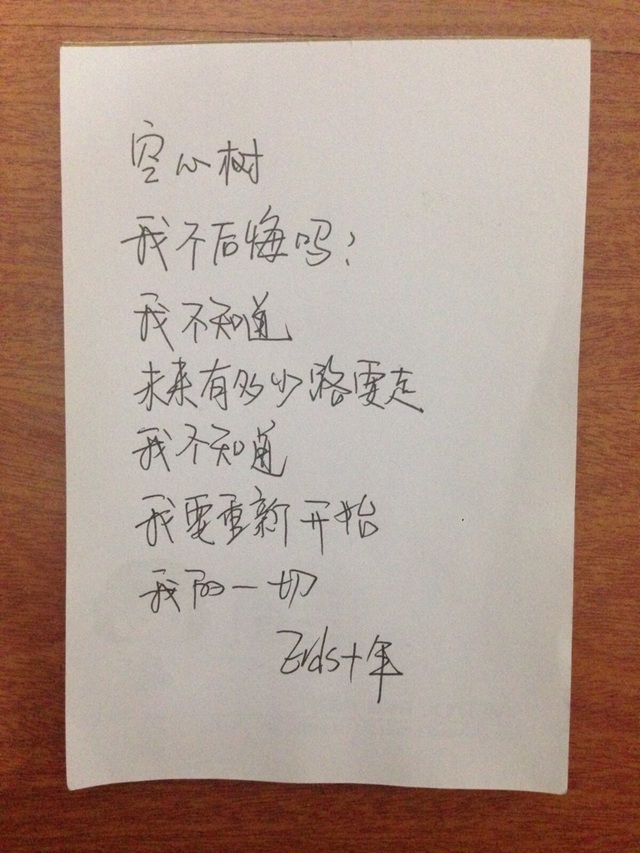 空心树
我不后悔吗?
我不知道
未来有多少路要走
我不知道
我要重新开始
我的一切
Erds十年